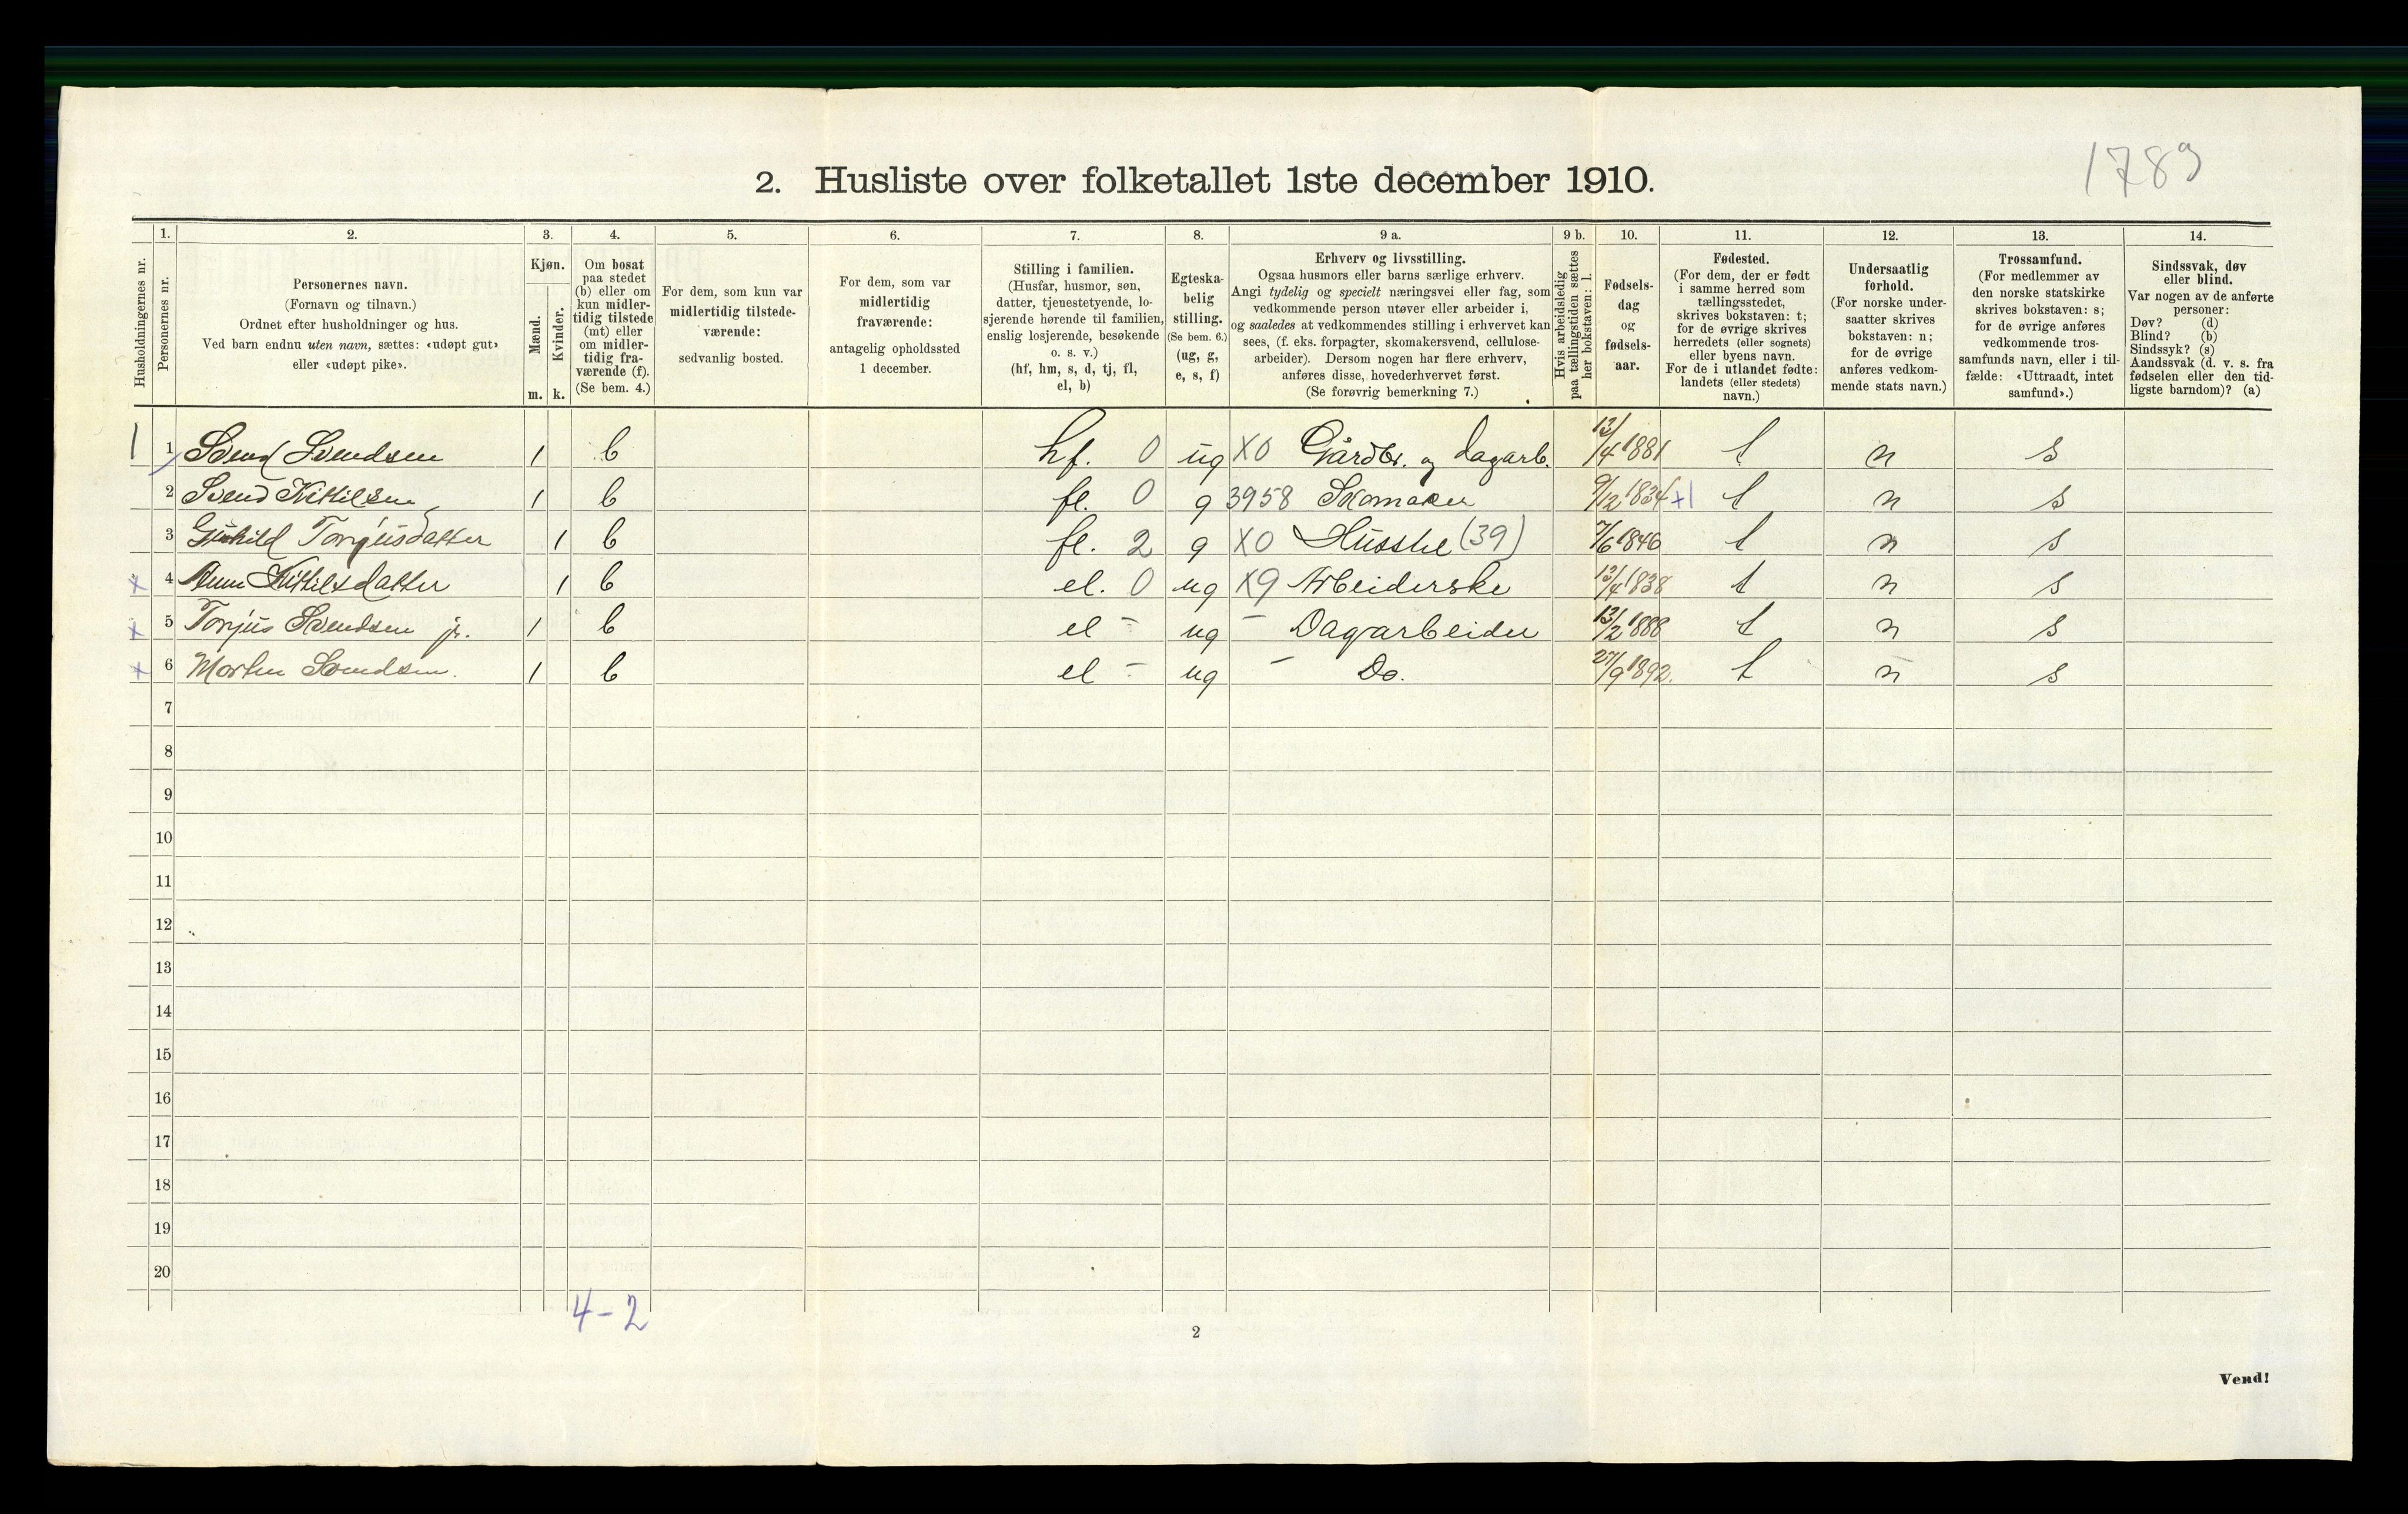 1789
2. Husliste over folketallet 1ste december 1910.
Husholdningernes nr.
1. Personernes nr.
2. Personernes navn.
(Fornavn og tilnavn.)
Ordnet efter husholdninger og hus.
Ved barn endnu uten navn, sættes: «udøpt gut»
eller «udøpt pike».
3. Kjøn.
Mænd. m.
Kvinder. k.
4. Om bosat
paa stedet
(b) eller om
kun midler-
tidig tilstede
(mt) eller
om midler-
tidig fra-
værende (f).
(Se bem. 4.)
5. For dem, som kun var
midlertidig tilstede-
værende:
sedvanlig bosted.
6. For dem, som var
midlertidig
fraværende:
antagelig opholdssted
1 december.
7. Stilling i familien.
(Husfar, husmor, søn,
datter, tjenestetyende, lo-
sjerende hørende til familien,
enslig losjerende, besøkende
o. s. v.)
(hf, hm, s, d, tj, fl,
el, b)
8. Egteska-
belig
stilling.
(Se bem. 6.)
(ug, g,
e, s, f)
9 a. Erhverv og livsstilling.
Ogsaa husmors eller barns særlige erhverv.
Angi tydelig og specielt næringsvei eller fag, som
vedkommende person utøver eller arbeider i,
og saaledes at vedkommendes stilling i erhvervet kan
sees, (f. eks. forpagter, skomakersvend, cellulose-
arbeider). Dersom nogen har flere erhverv,
anføres disse, hovederhvervet først.
(Se forøvrig bemerkning 7.)
9 b. Hvis arbeidsledig
paa tællingstiden sættes
her bokstaven: l.
10. Fødsels-
dag
og
fødsels-
aar.
11. Fødested.
(For dem, der er født
i samme herred som
tællingsstedet,
skrives bokstaven: t;
for de øvrige skrives
herredets (eller sognets)
eller byens navn.
For de i utlandet fødte:
landets (eller stedets)
navn.)
12. Undersaatlig
forhold.
(For norske under-
saatter skrives
bokstaven: n;
for de øvrige
anføres vedkom-
mende stats navn.)
13. Trossamfund.
(For medlemmer av
den norske statskirke
skrives bokstaven: s;
for de øvrige anføres
vedkommende tros-
samfunds navn, eller i til-
fælde: «Uttraadt, intet
samfund».)
14. Sindssvak, døv
eller blind.
Var nogen av de anførte
personer:
Døv? (d)
Blind? (b)
Sindssyk? (s)
Aandssvak (d. v. s. fra
fødselen eller den tid-
ligste barndom)? (a)
1 1 Svend Svendsen 1 b hf. 0 ug X0 Gårdbr. og dagarb. 13/4 1881 t n s
2 Svend Kittilsen 1 b fl. 0 g 3958 Skomaker 9/12 1834 +1 t n s
3 Gunhild Torjusdatter 1 b fl. 2 g X0 Husstel (39) 7/6 1846 t n s
x 4 Kittilsdatter 1 b el. 0 ug X9 Arbeiderske 13/4 1838 t n s
x 5 Torjus Svendsen jr. 1 b el - ug - Dagarbeider 13/2 1888 t n s
x 6 Morten Svendsen. 1 b el - ug - Do. 27/9 1892. t n s
7
8
9
10
11
12
13
14
15
16
17
18
19
20
4-2
2
Vend!